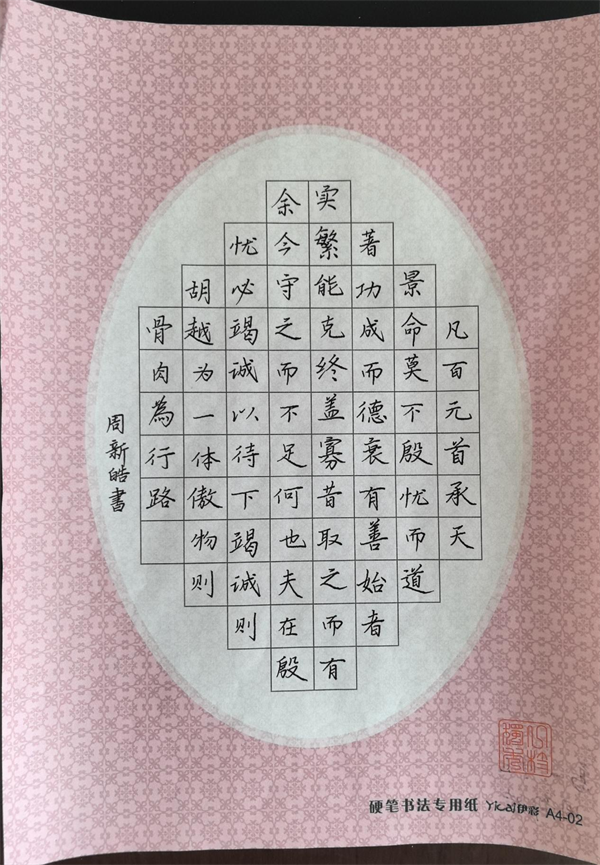 凡百元首承天
景命莫不殷忧而道
著功成而德衰有善始者
实繁能克终盖寡昔取之而有
余今守之而不足何也夫在殷
忧必竭诚以待下竭诚则
胡越为一体傲物则
骨肉為行路
周新皓書
硬笔书法专用纸 Yicai伊彩 A4-02